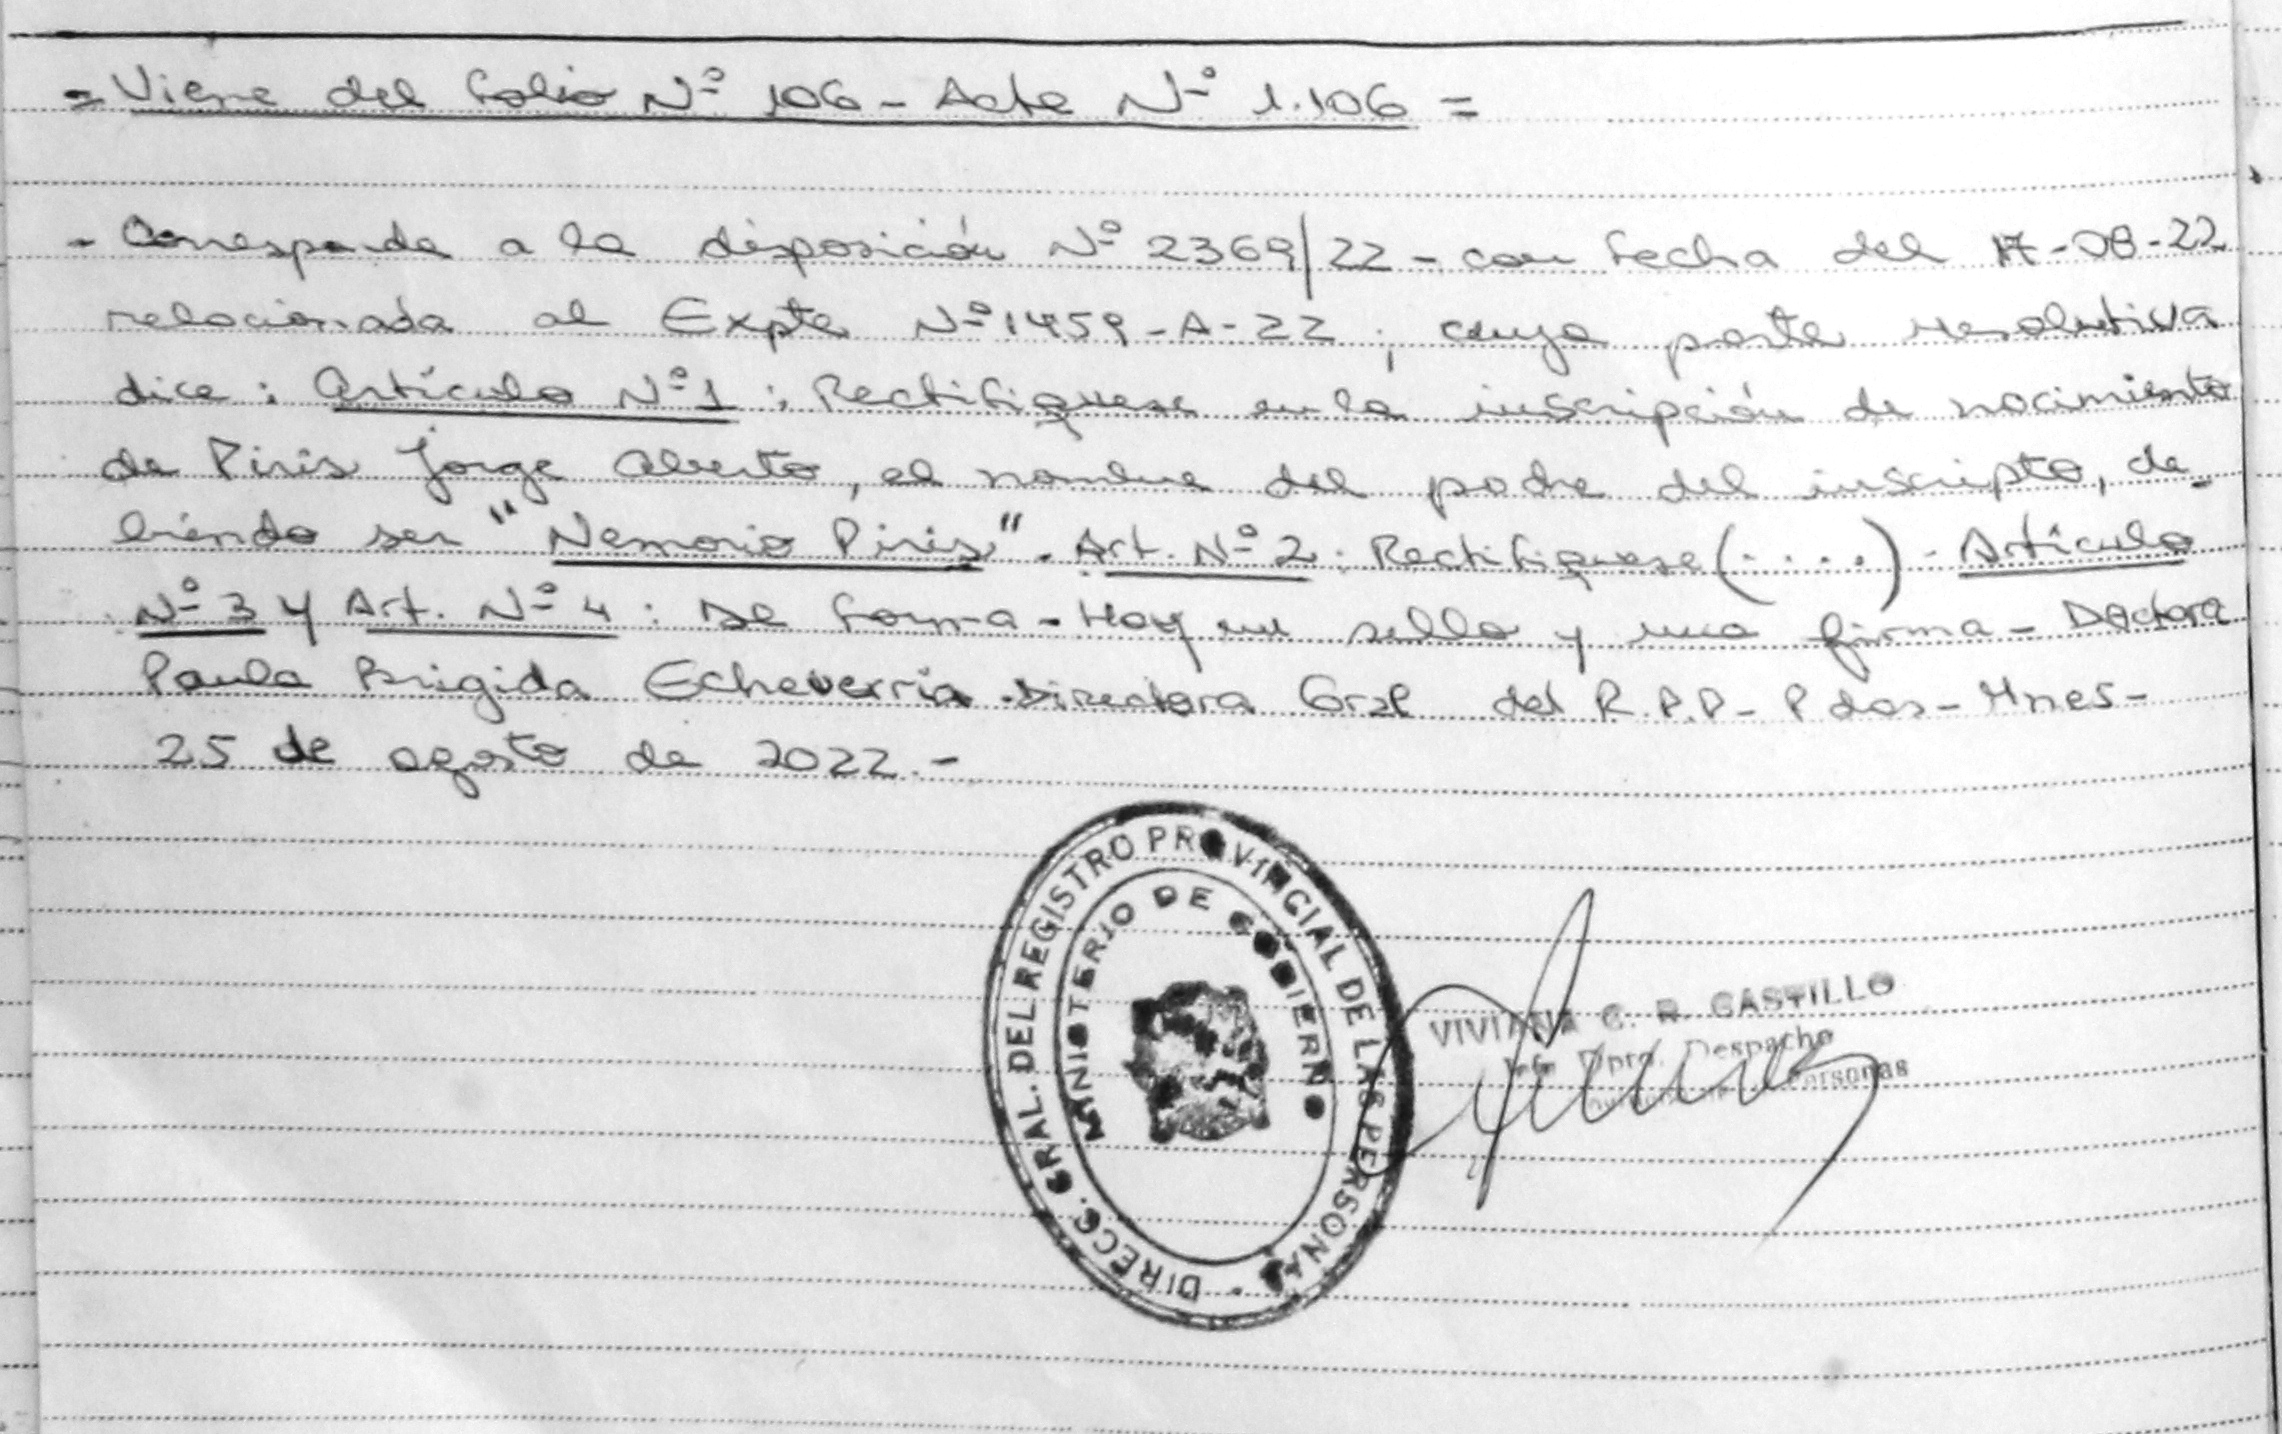 = Viene del folio Nº 106 - Acta Nº 1.106 =
- Corresponde a la disposición Nº 2369/22 - con fecha del 17-08-22
relacionada al Expte Nº 1459-A-22, cuya parte resolutiva
dice: Artículo Nº 1: Rectifiquese en la inscripción de nacimiento
de Piris Jorge Alberto, el nombre del padre del inscripto, de-
biendo ser "Nemorio Piris". Art. Nº 2: Rectifiquese (.....) - Artículo
Nº 3 y Art. Nº 4: De forma - Hay un sello y una firma - Doctora
Paula Brigida Echeverría - Directora Gral del R.P.P - Pdas - Mnes -
25 de agosto de 2022.-
DIRECC. GRAL. DEL REGISTRO PROVINCIAL DE LAS PERSONAS -
MINISTERIO DE GOBIERNO
VIVIANA C. R. CASTILLO
Dpto. Despacho
Personas